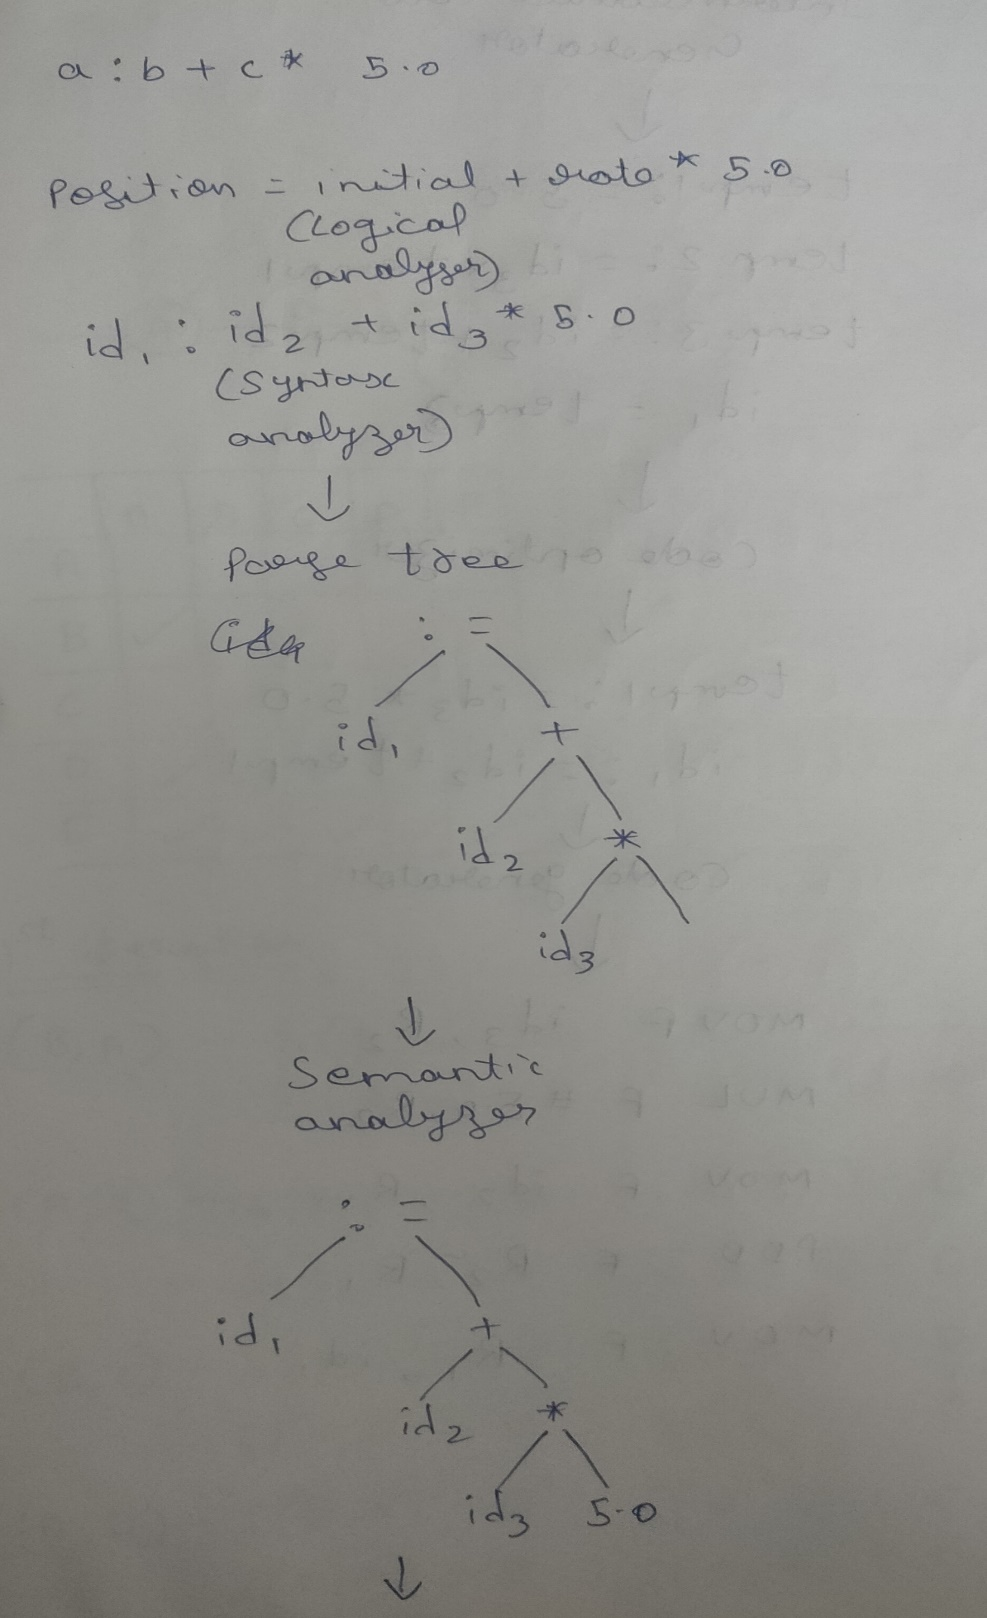 a : b + c * 5.0
Position = initial + rate * 5.0
(Logical
analyzer)
id1 : id2 + id3 * 5.0
(Syntax
analyzer)
↓
Parse tree
: =
id1 +
id2 *
id3
↓
Semantic
analyzer
: =
id1 +
id2 *
id3 5.0
↓